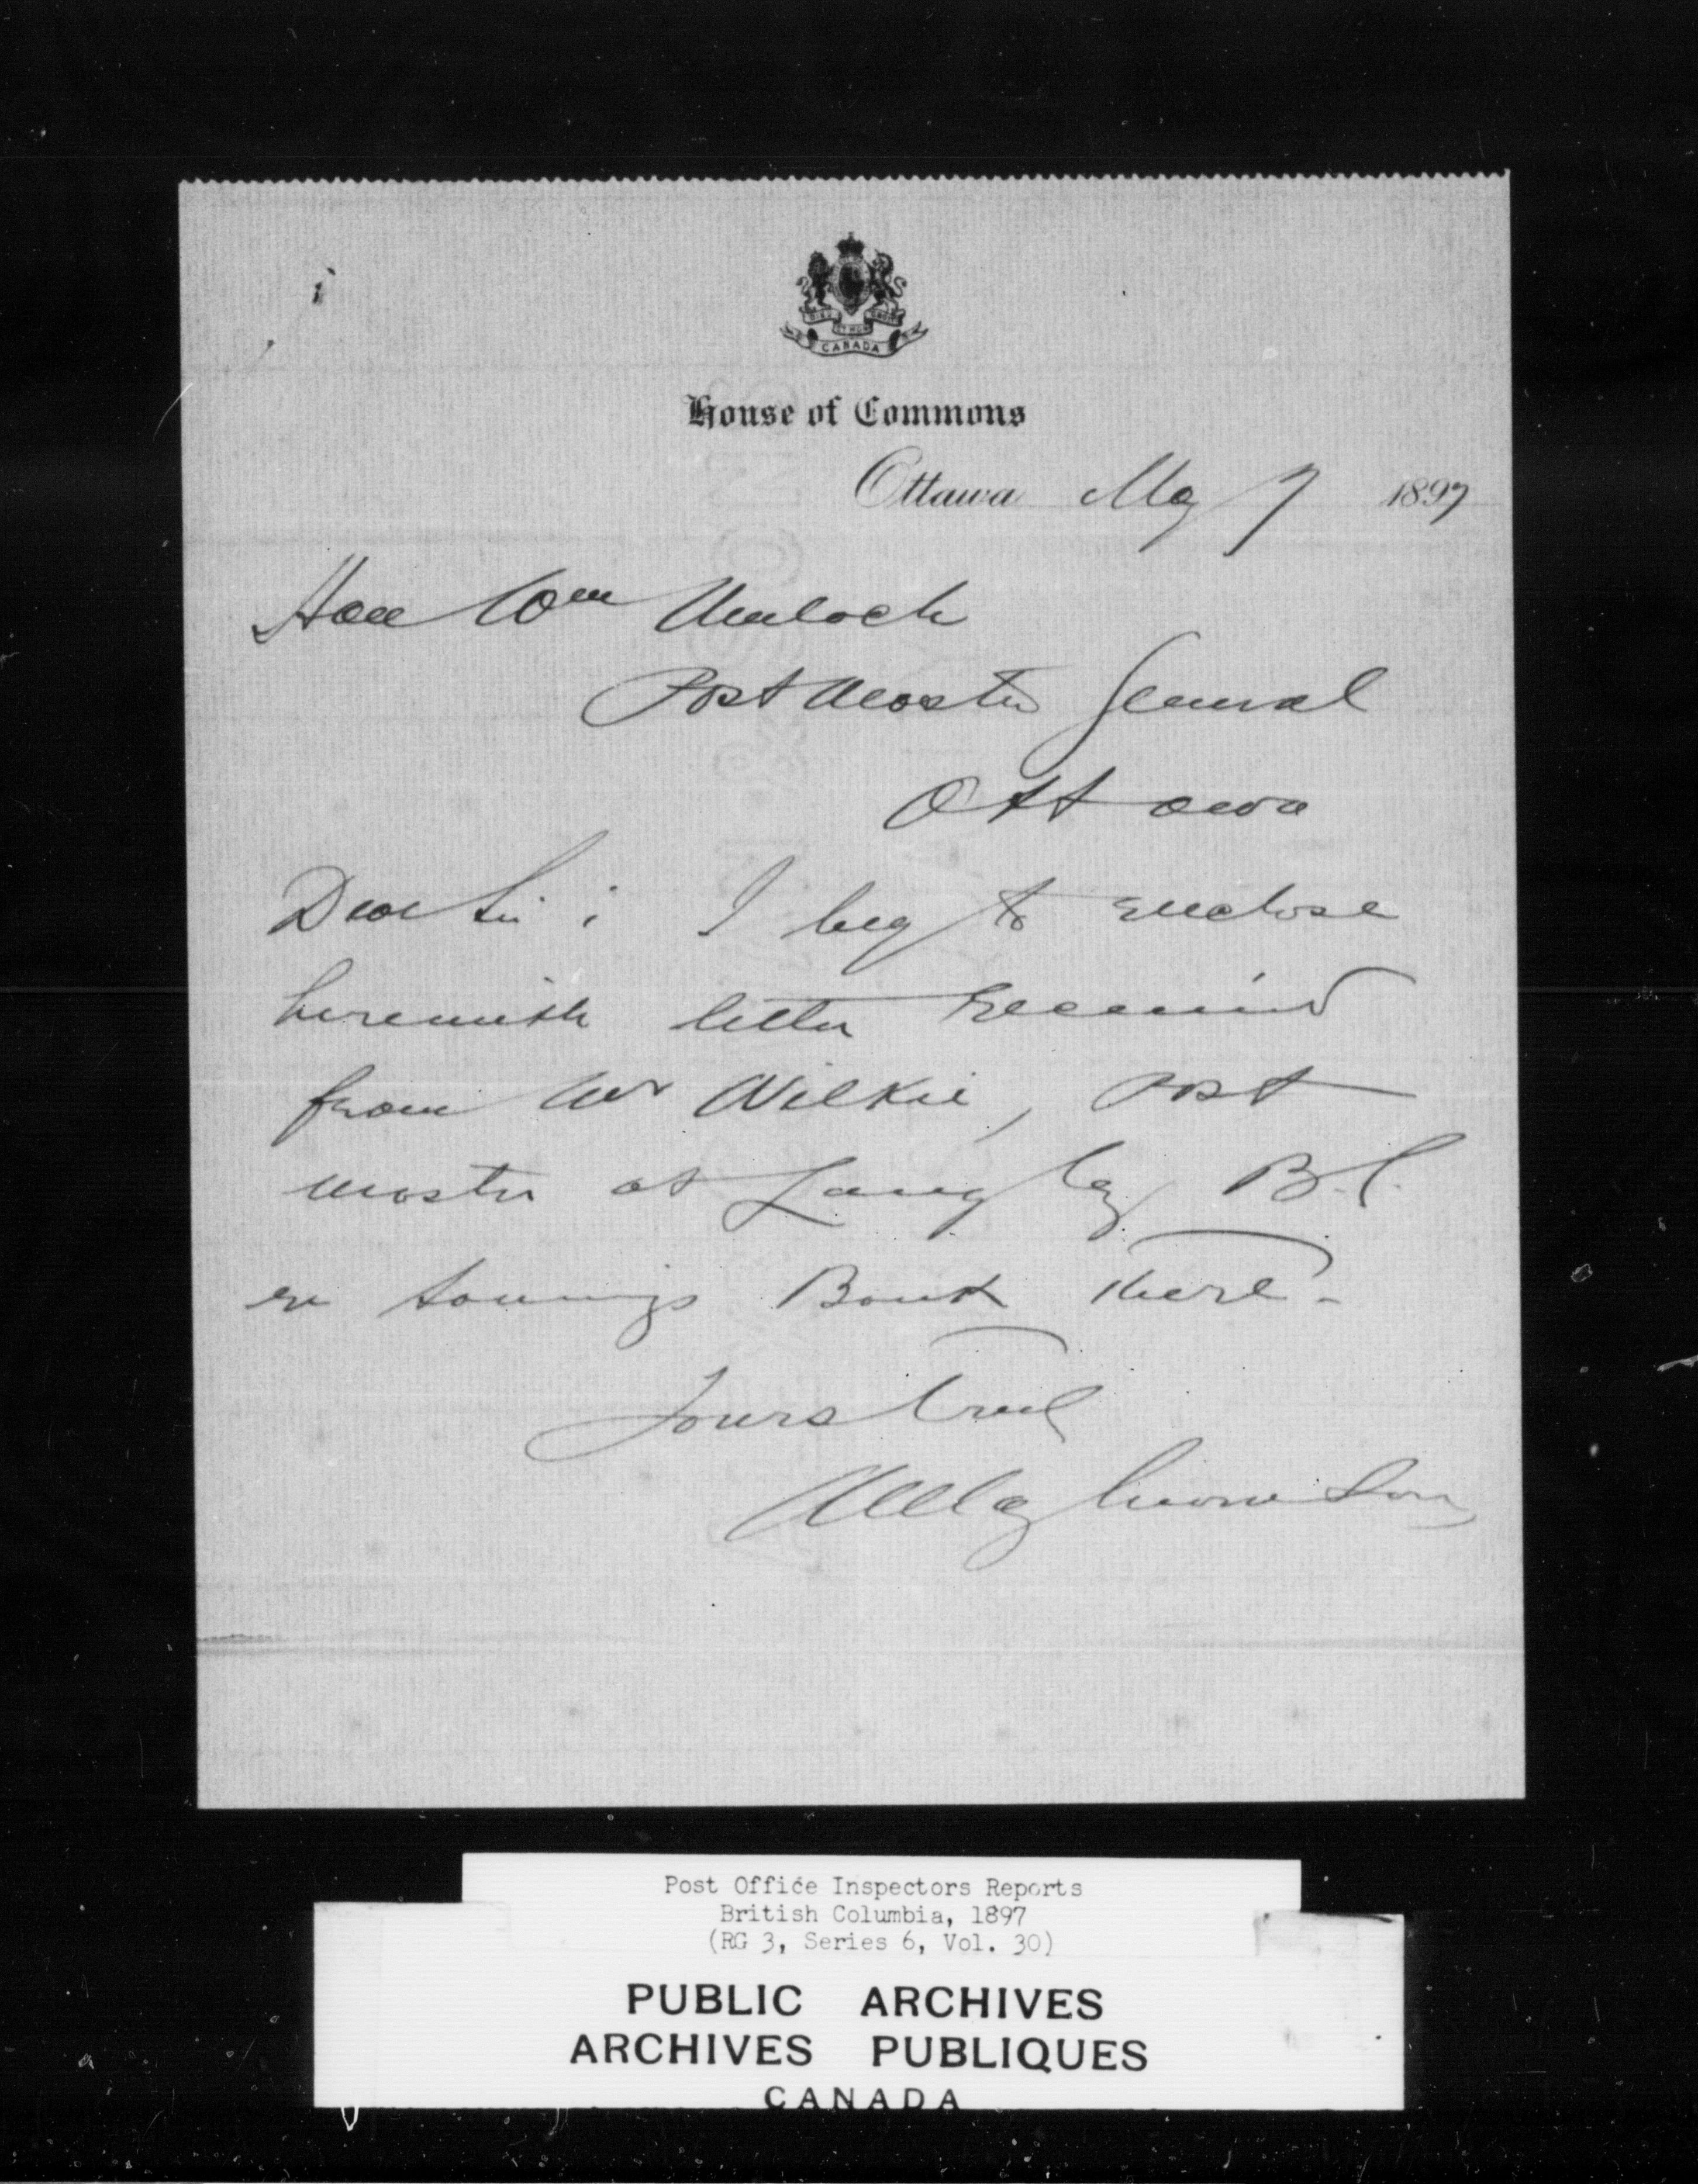 DIEU ET MON DROIT
CANADA
House of Commons
Ottawa May 7 1897
Hon Wm Mulock
Post Master General
Ottawa
Dear Sir : I beg to enclose
herewith letter received
from Mr Wilkie, Post
master at Langley B.C.
re Savings Bank there -
Yours truly
Post Office Inspectors Reports
British Columbia, 1897
(RG 3, Series 6, Vol. 30)
PUBLIC ARCHIVES
ARCHIVES PUBLIQUES
CANADA